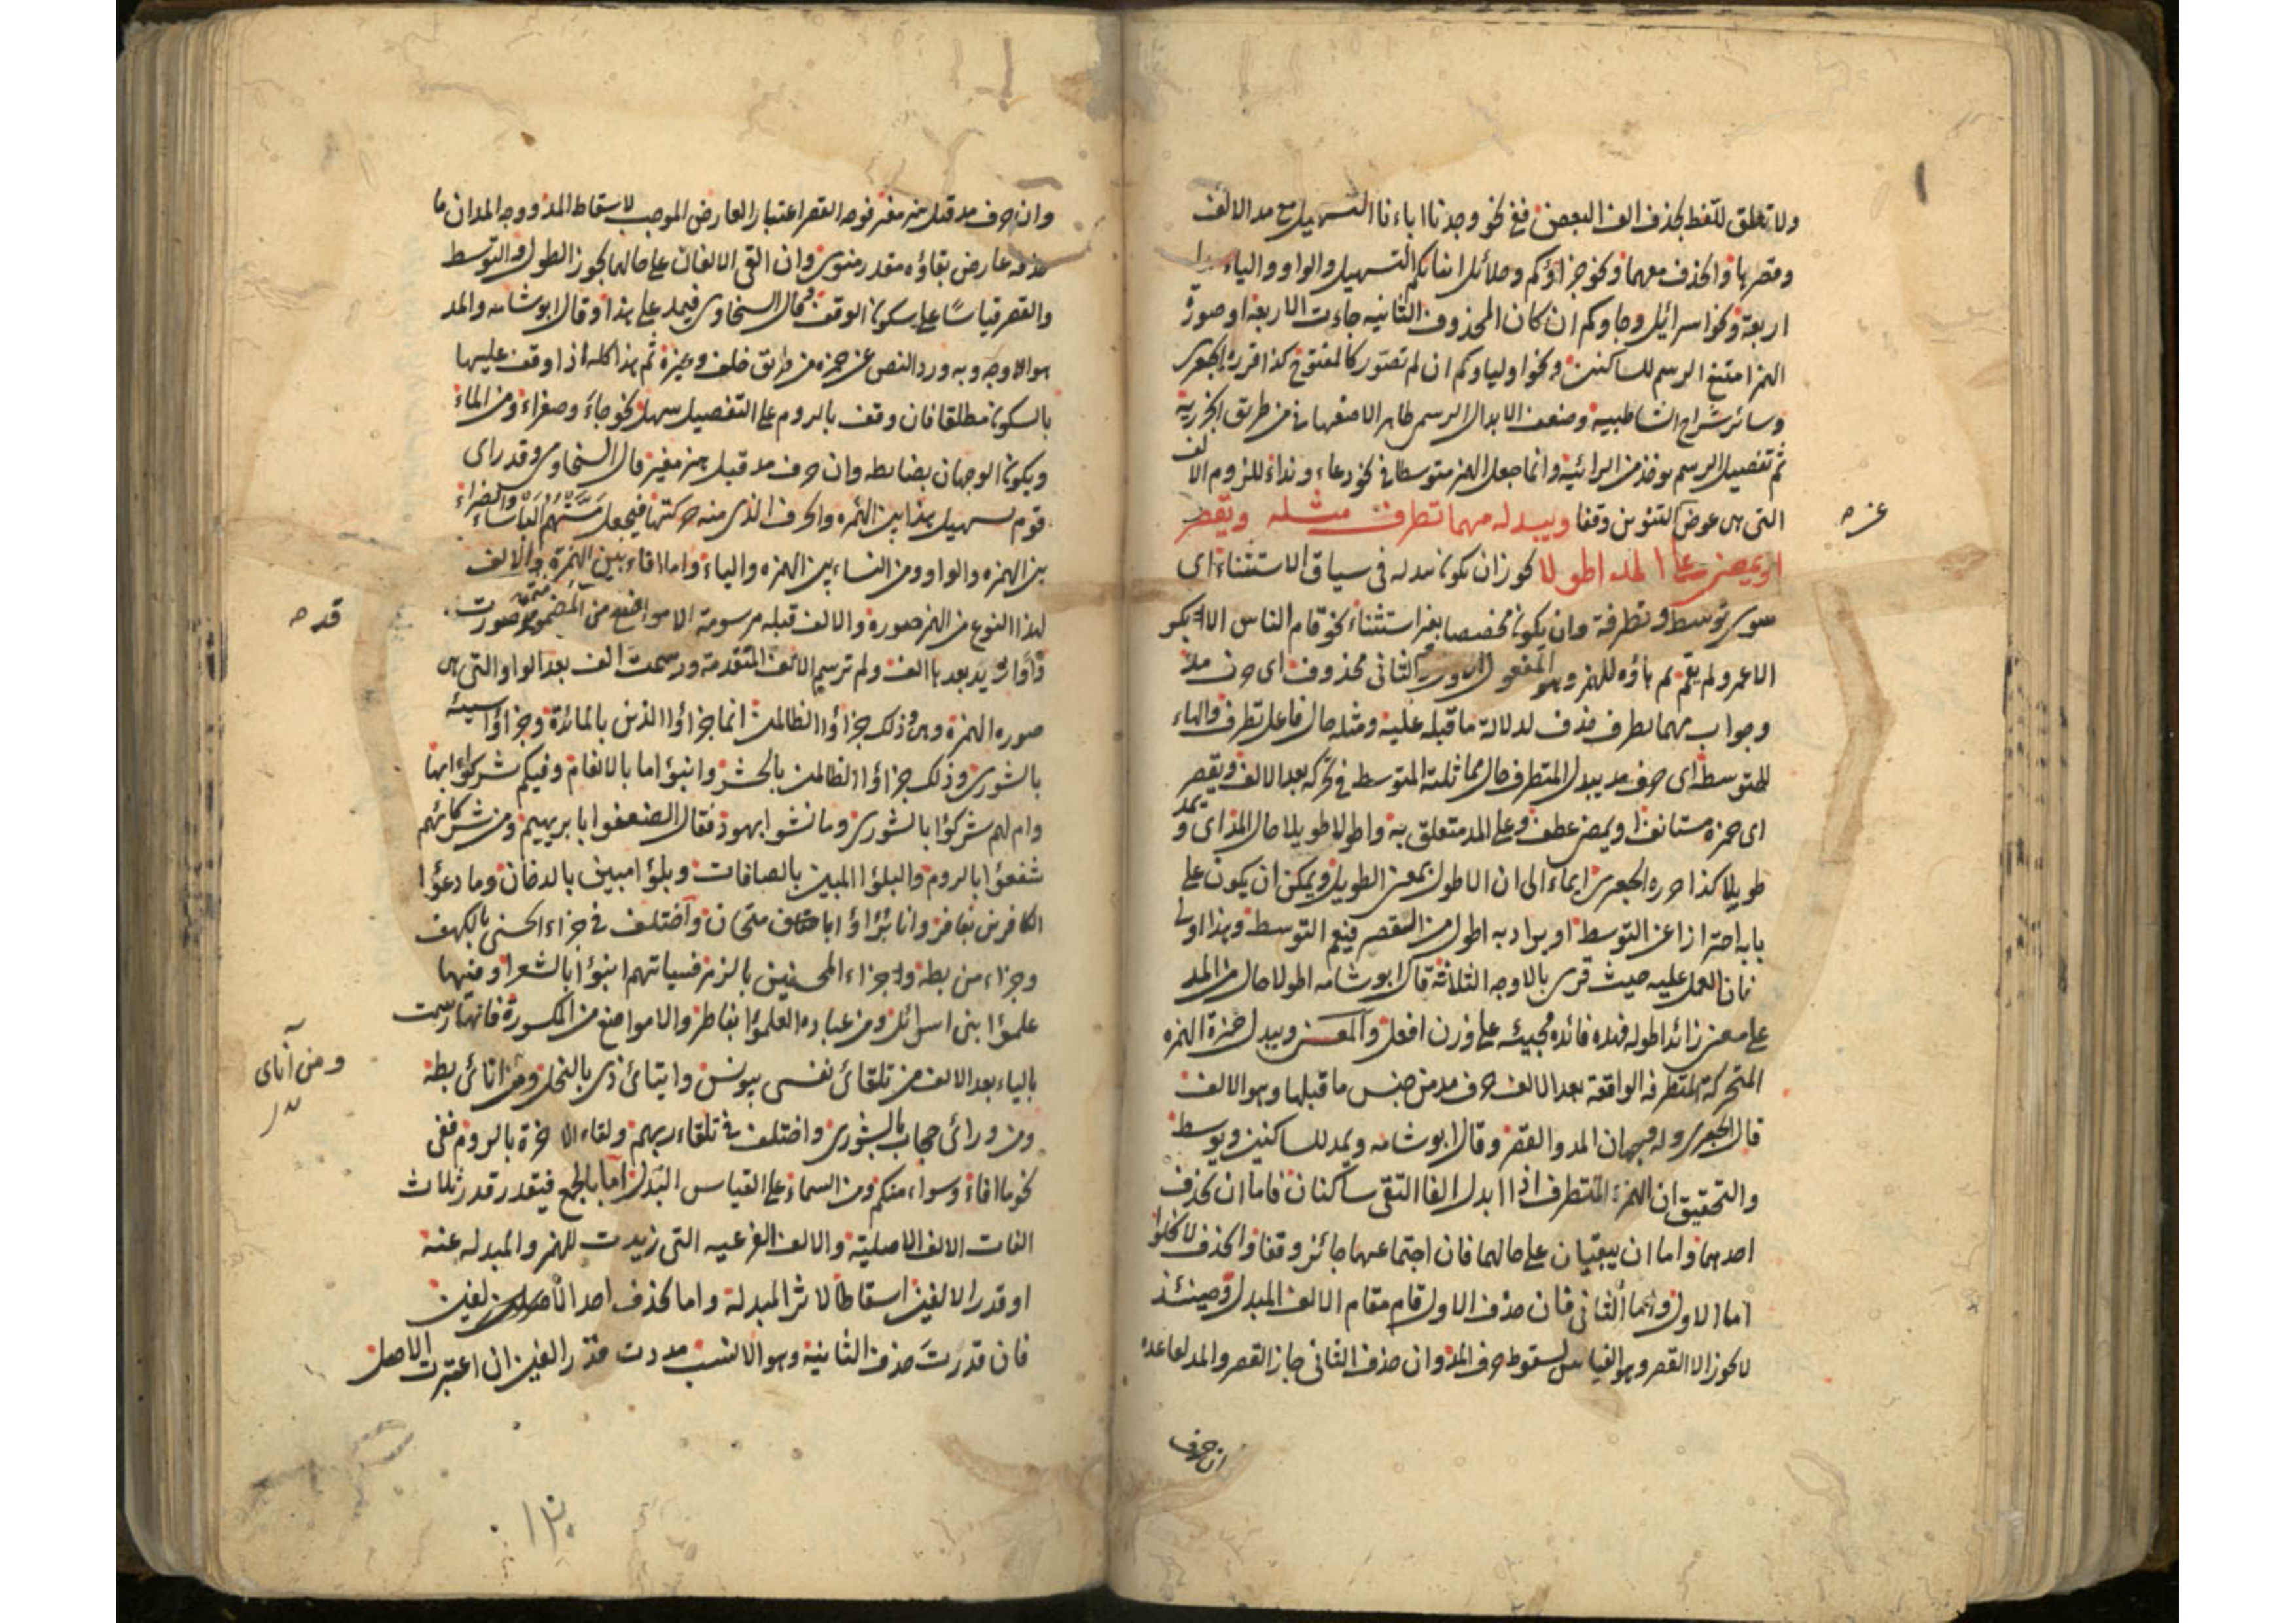 ولا تعلق للتلفظ بحذف الف البعض ففي نحو وجدنا اباءنا التسهيل مع مد الالف
وقصرها والحذف معهما ونحو جزاؤكم وحلائل ابنائكم التسهيل والواو والياء
اربعة ونحو اسرائيل وجاوكم ان كان المحذوف الثانية جاءت الاربعة او صورة
الهمز امتنع الرسم للساكنين ونحو اولياوكم ان لم تصور كالمفتوح كذا قرره الجعبري
وسائر شراح الشاطبية وضعف الابدال الرسمي ظاهر الاصفهاني من طريق الجزرية
ثم تفصيل الرسم يوخذ من الرائية وانما جعل الهمز متوسطا في نحو دعاء ونداء للزوم الالف
التي هي عوض التنوين وقفا ويبدله مهما تطرف مثله ويقصر
او يمضي على المد اطولا يجوز ان يكون يبدله في سياق الاستثناء اى
سوى توسط وتطرفه وان يكون مخصصا بغير استثناء نحو قام الناس الا بكر
الا عمر ولم يقم ثم هاؤه للهمز وهو المفعول الاول والثاني محذوف اى حرف مد
وجواب مهما تطرف حذف لدلالة ما قبله عليه ومثله حال فاعل تطرف والهاء
للمتوسط اى حرف مد يبدل المتطرف حال مماثلة المتوسط في تحركه بعد الالف ويقصر
اى حمزة مستانف او يمضي عطف وعلى المد متعلق به واطولا طويلا حال المد اى ويمد
طويلا كذا حرره الجعبري ايماء الى ان الاطول بمعنى الطويل ويمكن ان يكون على
بابه احترازا عن التوسط او يراد به اطول من القصر فيعم التوسط وهذا اولى
فان العمل عليه حيث قرى بالاوجه الثلاثة قال ابو شامه اطولا حال من المد
على معنى زائدا طوله فهذه فائدة مجيئه على وزن افعل والمعنى ويبدل حمزة الهمزه
المتحركة المتطرفه الواقعة بعد الالف حرف مد من جنس ما قبلها وهو الالف
قال الجعبري وله وجهان المد والقصر وقال ابو شامه ويمد للساكنين ويوسط
والتحقيق ان الهمزة المتطرف اذا ابدل الفا التقى ساكنان فاما ان يحذف
احدهما واما ان يبقيان على حالهما فان اجتماعهما جائز وقفا والحذف لا يخلوا
اما الاول واما الثاني فان حذف الاول قام مقام الالف المبدل وحينئذ
لا يجوز الا القصر وهو القياس لسقوط حرف المد وان حذف الثاني جاز القصر والمد لقاعدة
ان حرف
وان حرف مد قبل همز مغير فوجه القصر اعتبار العارض الموجب لاسقاط المد ووجه المد ان ما
حذفه عارض بقاؤه مقدر منوى وان التقى الالفان على حالهما يجوز الطول والتوسط
والقصر قياسا على سكون الوقف قال السخاوى فيمد على هذا وقال ابو شامه والمد
هو الاوجه وبه ورد النص عن حمزه من طريق خلف وغيره ثم هذا كله اذا وقف عليها
بالسكون مطلقا فان وقف بالروم على التفصيل سهل نحو جاء وصفراء ومن الماء
ويكون الوجهان بضابطه وان حرف مد قبل همز مغير قال السخاوى وقد راى
قوم تسهيل هذا بين الهمزه والحرف الذى منه حركتها فيجعل مستهم الباساء والضراء
بين الهمزه والواو ومن النساء بين الهمزه والياء واما افاء بين الهمزة والالف
لهذا النوع من الهمز صورة والالف قبله مرسومة الا مواضع من المضمومة صورت
واوا زيد بعدها الف ولم ترسم الالف المتقدمة ورسمت الف بعد الواو التي هي
صوره الهمزة وهى وذلك جزاؤا الظالمين انما جزاؤا الذين بالمائدة وجزاؤا سيئة
بالشورى وذلك جزاؤا الظالمين بالحشر وانبؤا ما بالانعام وفيكم شركؤا بها
وام لهم شركؤا بالشورى وما نشوا بهود فقال الضعفوا بابرهيم ومن شركائهم
شفعؤا بالروم والبلؤا المبين بالصافات وبلؤا مبين بالدخان وما دعؤا
الكافرين بغافر وانا برؤاؤا بامتحان واختلف في جزاء الحسنى بالكهف
وجزاء من بطه وجزاء المحسنين بالزمر فسياتهم انبؤا بالشعرا ومنها
علمؤا بنى اسرائل ومن عباده العلمؤا بفاطر والا مواضع من المكسورة فانها رسمت
بالياء بعد الالف من تلقائ نفسى بيونس وايتائ ذى بالنحل ومن اناى بطه
ومن ورائ حجاب بالشورى واختلف في تلقاء ربهم ولقاء الاخرة بالروم ففى
نحو ما افاء وسواء منكم ومن السماء على القياس البدل اما بالجمع فيقدر قدر ثلاث
الفات الالف الاصلية والالف الفرعيه التي زيدت للهمز والمبدله عنه
او قدر الالفين اسقاطا لاثر المبدلة واما بحذف احد الالفين
فان قدرت حذف الثانية وهو الانسب مددت قدر الفين ان اعتبرت الاصل
ومن آناى